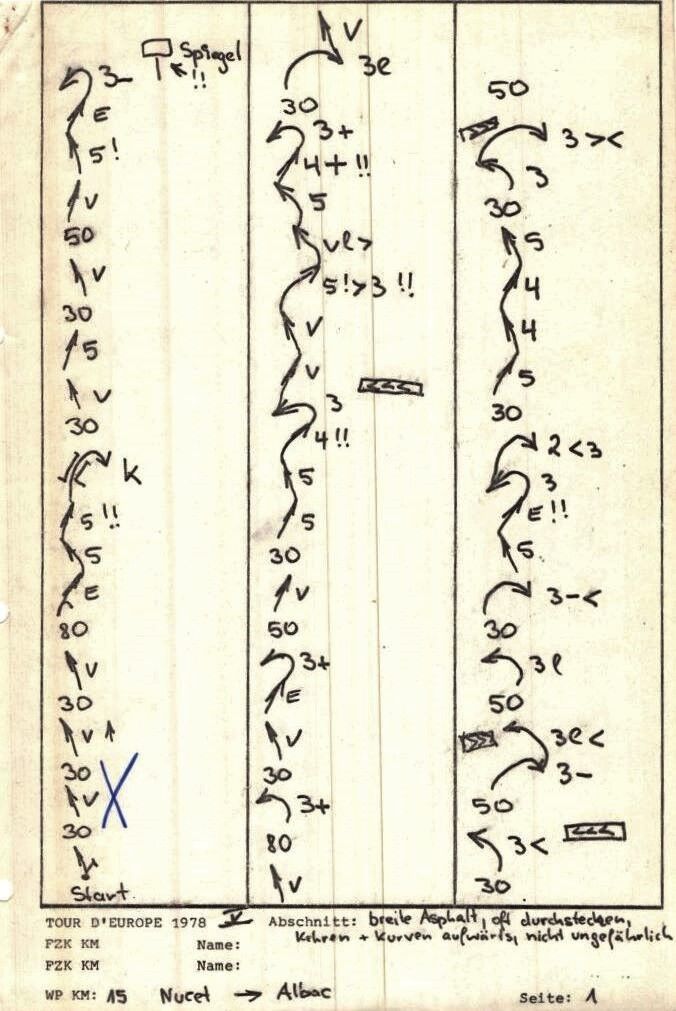 Spiegel
!!
3-
E
5!
V
50
V
30
5
V
30
K
5!!
5
E
80
V
30
V
30
V
30
Start
V
3e
30
3+
4+!!
5
ve>
5!>3 !!
V
V
<<<
3
4!!
5
5
30
V
50
3+
E
V
30
3+
80
V
50
>>>
3><
3
30
5
4
4
5
30
2<3
3
E!!
5
3-<
30
3e
50
>>>
3e<
3-
50
3<
<<<
30
TOUR D'EUROPE 1978 V Abschnitt: breite Asphalt, oft durchstecken,
Kehren + Kurven aufwärts, nicht ungefährlich
FZK KM Name:
FZK KM Name:
WP KM: 15 Nucet → Albac Seite: 1